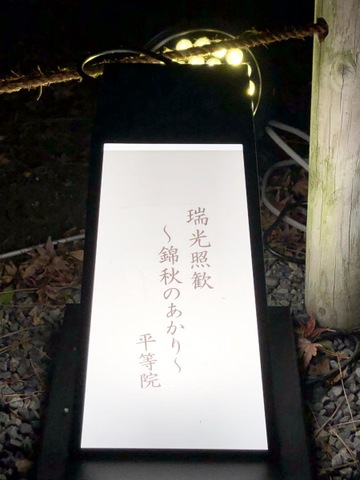 瑞光照歓
～錦秋のあかり～
平等院